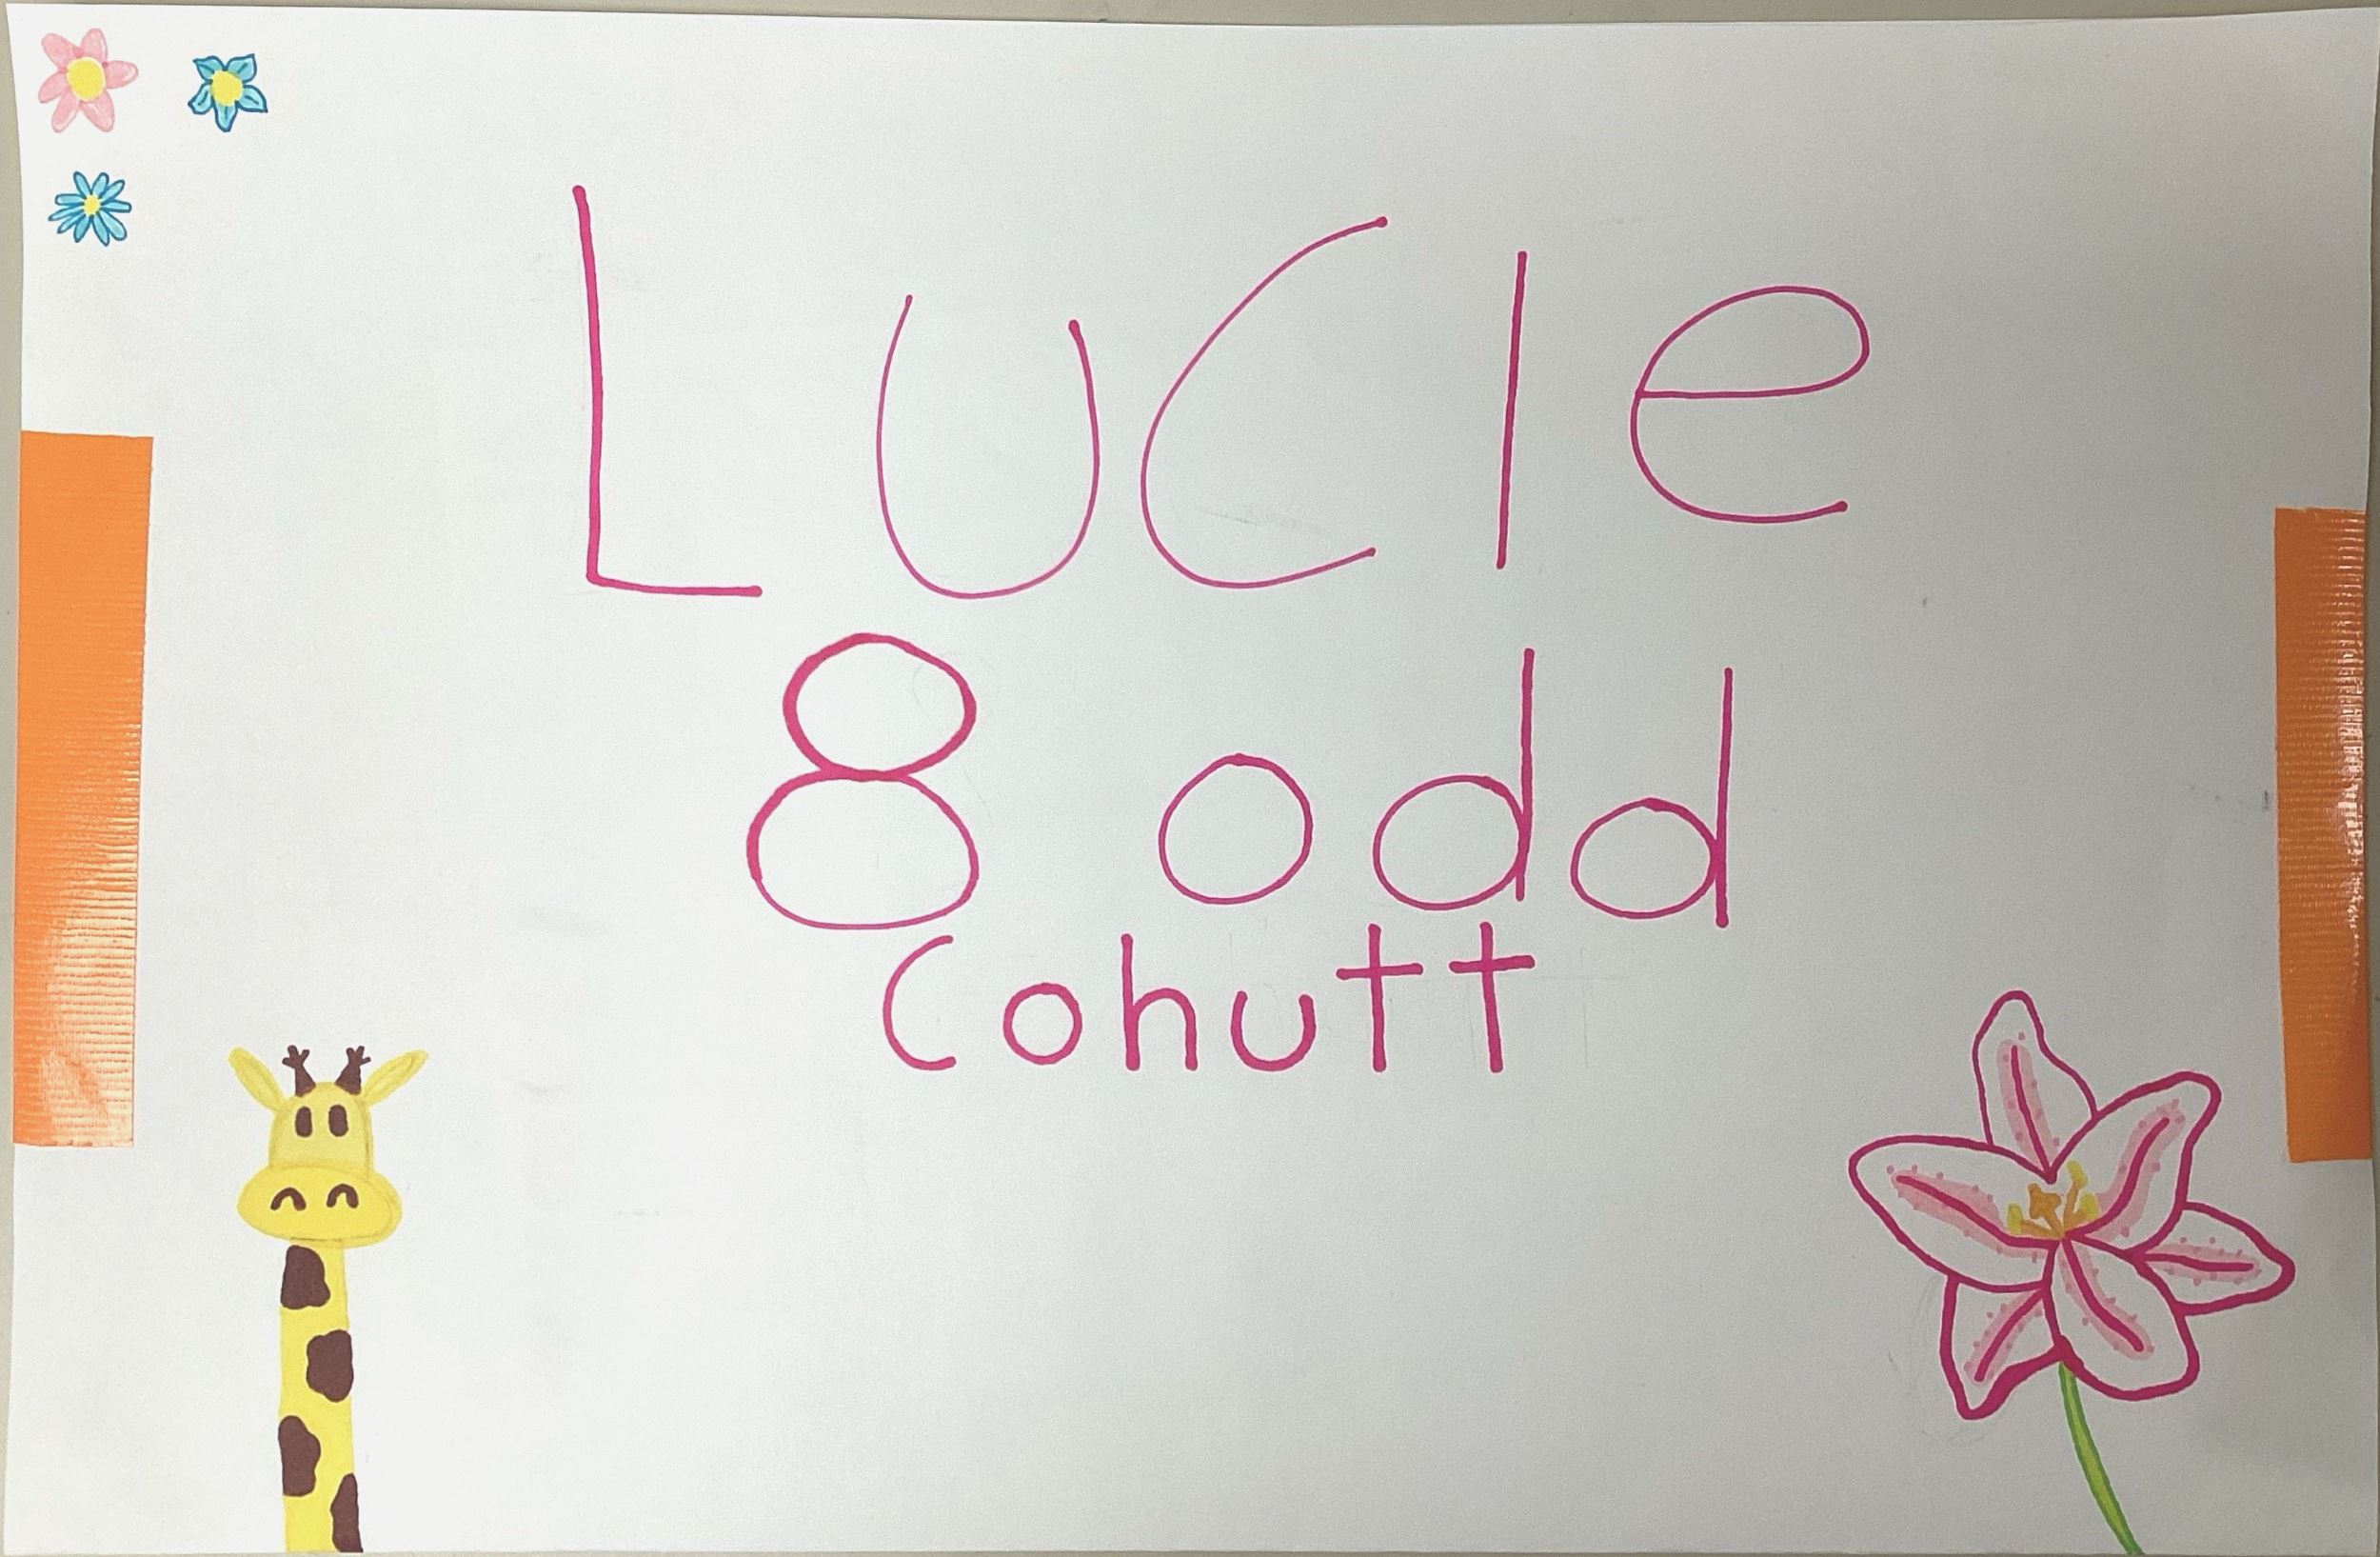 Lucie
8 odd
Cohutt